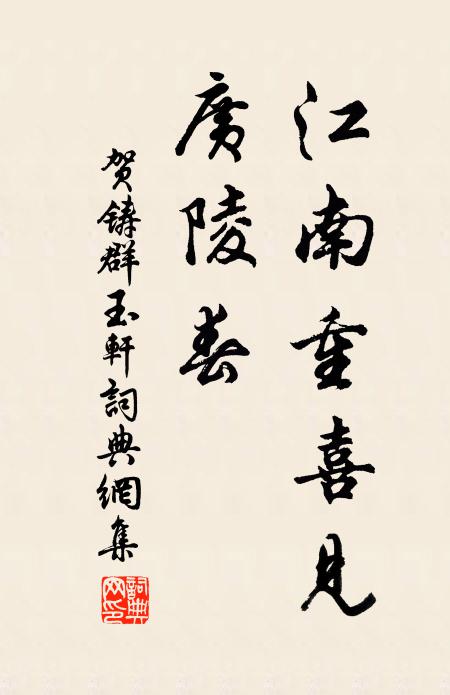 江南重喜見
廣陵春
贺鑄群玉軒詞典網集
詞典網印